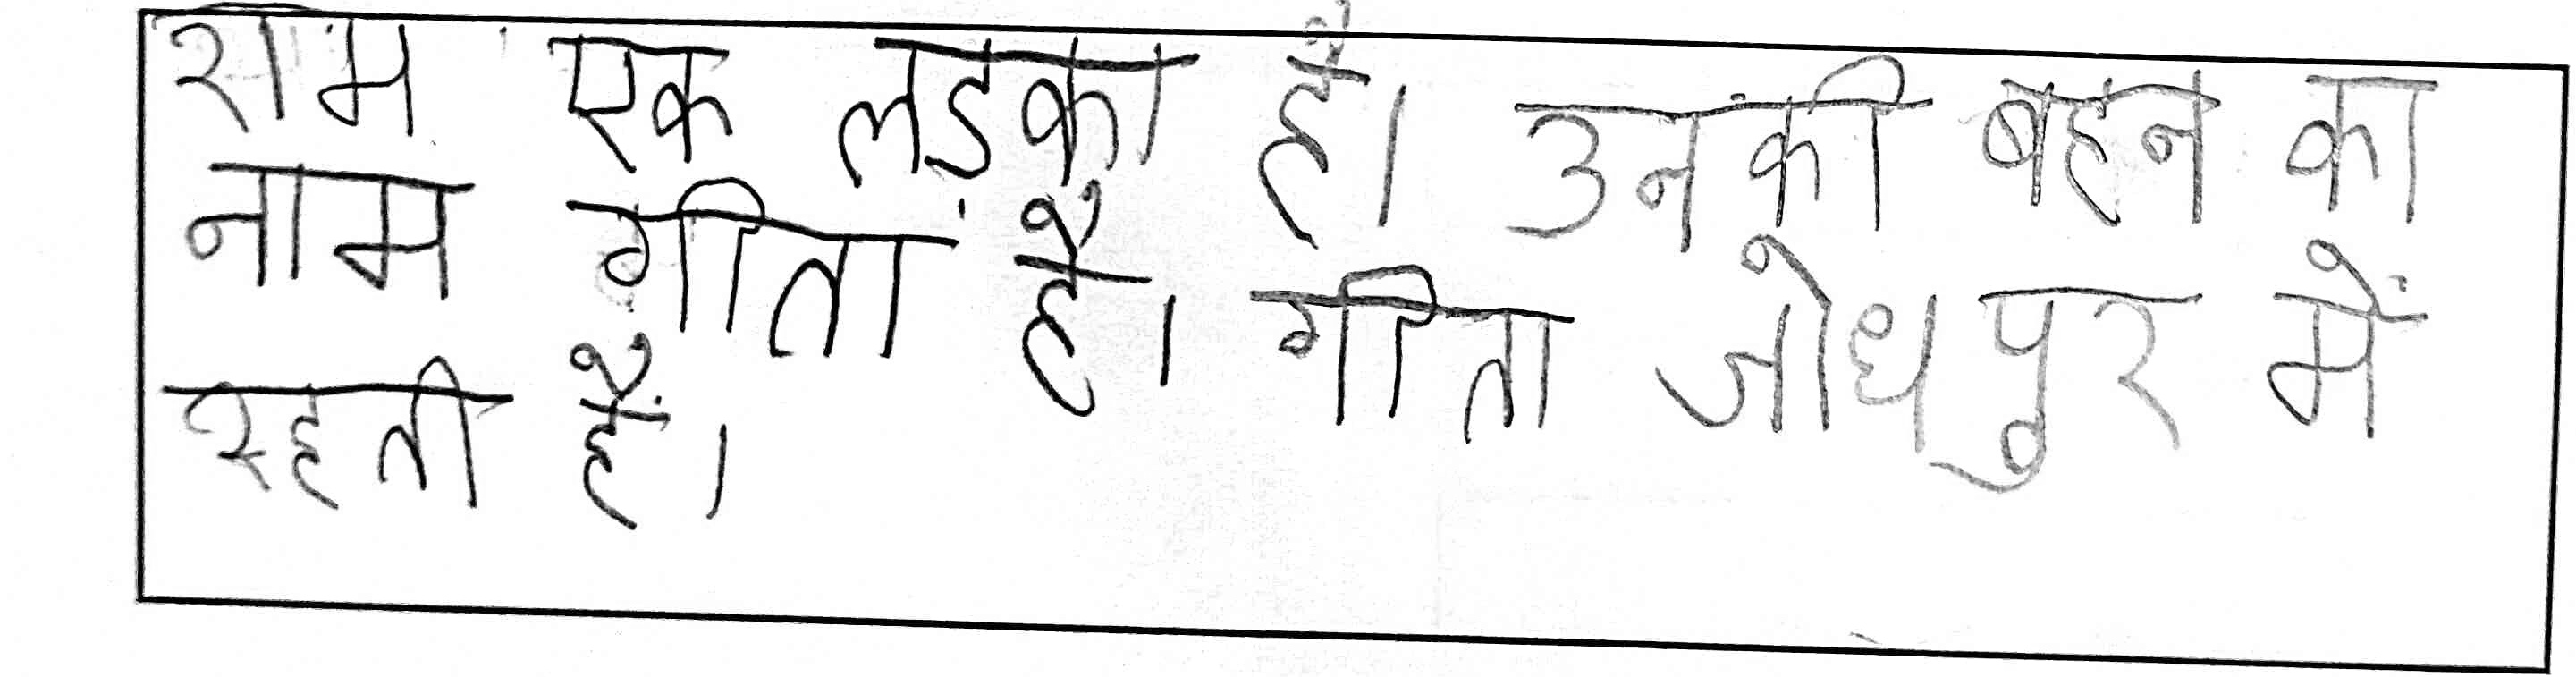 राम एक लड़का है। उनकी बहन का
नाम गीता है। गीता जोधपुर में
रहती हैं।